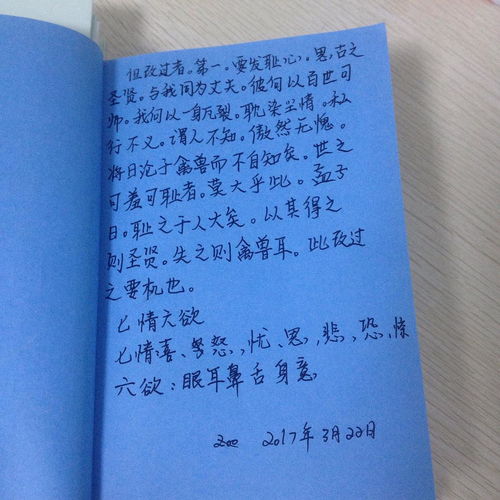 但改过者。第一。要发耻心。思古之
圣贤。与我同为丈夫。彼何以百世可
师。我何以一身瓦裂。耽染尘情。私
行不义。谓人不知。傲然无愧。
将日沦于禽兽而不自知矣。世之
可羞可耻者。莫大乎此。孟子
曰。耻之于人大矣。以其得之
则圣贤。失之则禽兽耳。此改过
之要机也。
七情六欲
七情喜、怒,忧、思,悲、恐,惊
六欲:眼耳鼻舌身意
2017年3月22日